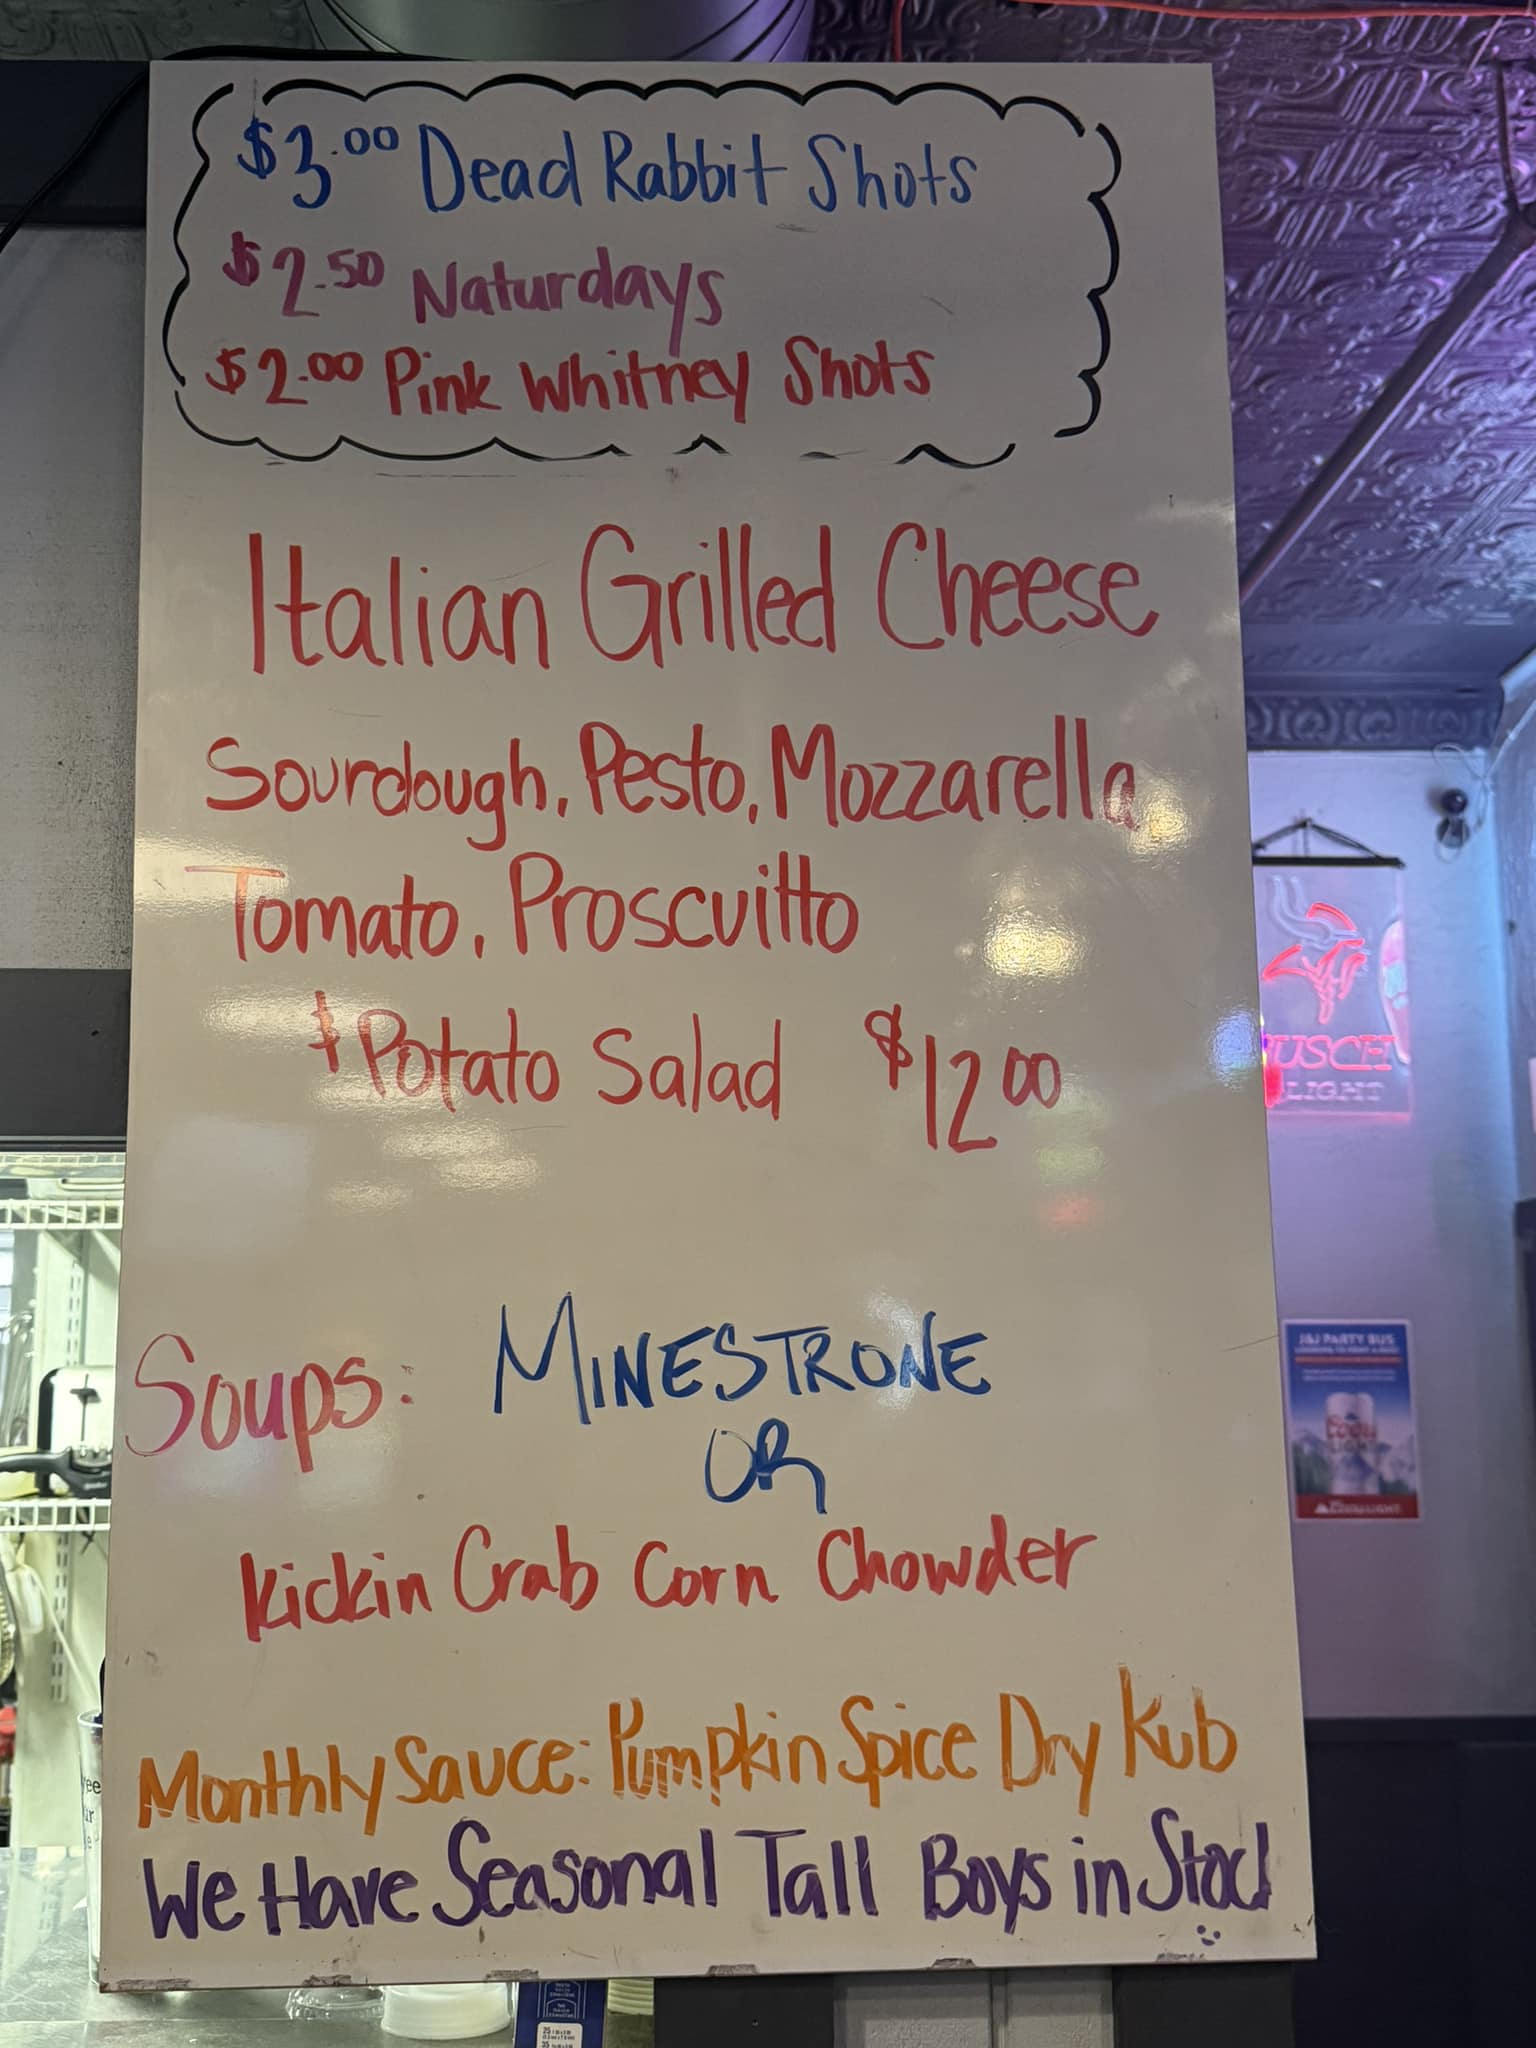 $3.00 Dead Rabbit Shots
$2.50 Naturdays
$2.00 Pink Whitney Shots
Italian Grilled Cheese
Sourdough, Pesto, Mozzarella
Tomato, Proscuitto
$ Potato Salad $12.00
Soups: MINESTRONE
OR
Kickin Crab Corn Chowder
Monthly Sauce: Pumpkin Spice Dry Kub
We Have Seasonal Tall Boys in Stock
USCH
LIGHT
J&J PARTY BUS
Coors
LIGHT
25
35